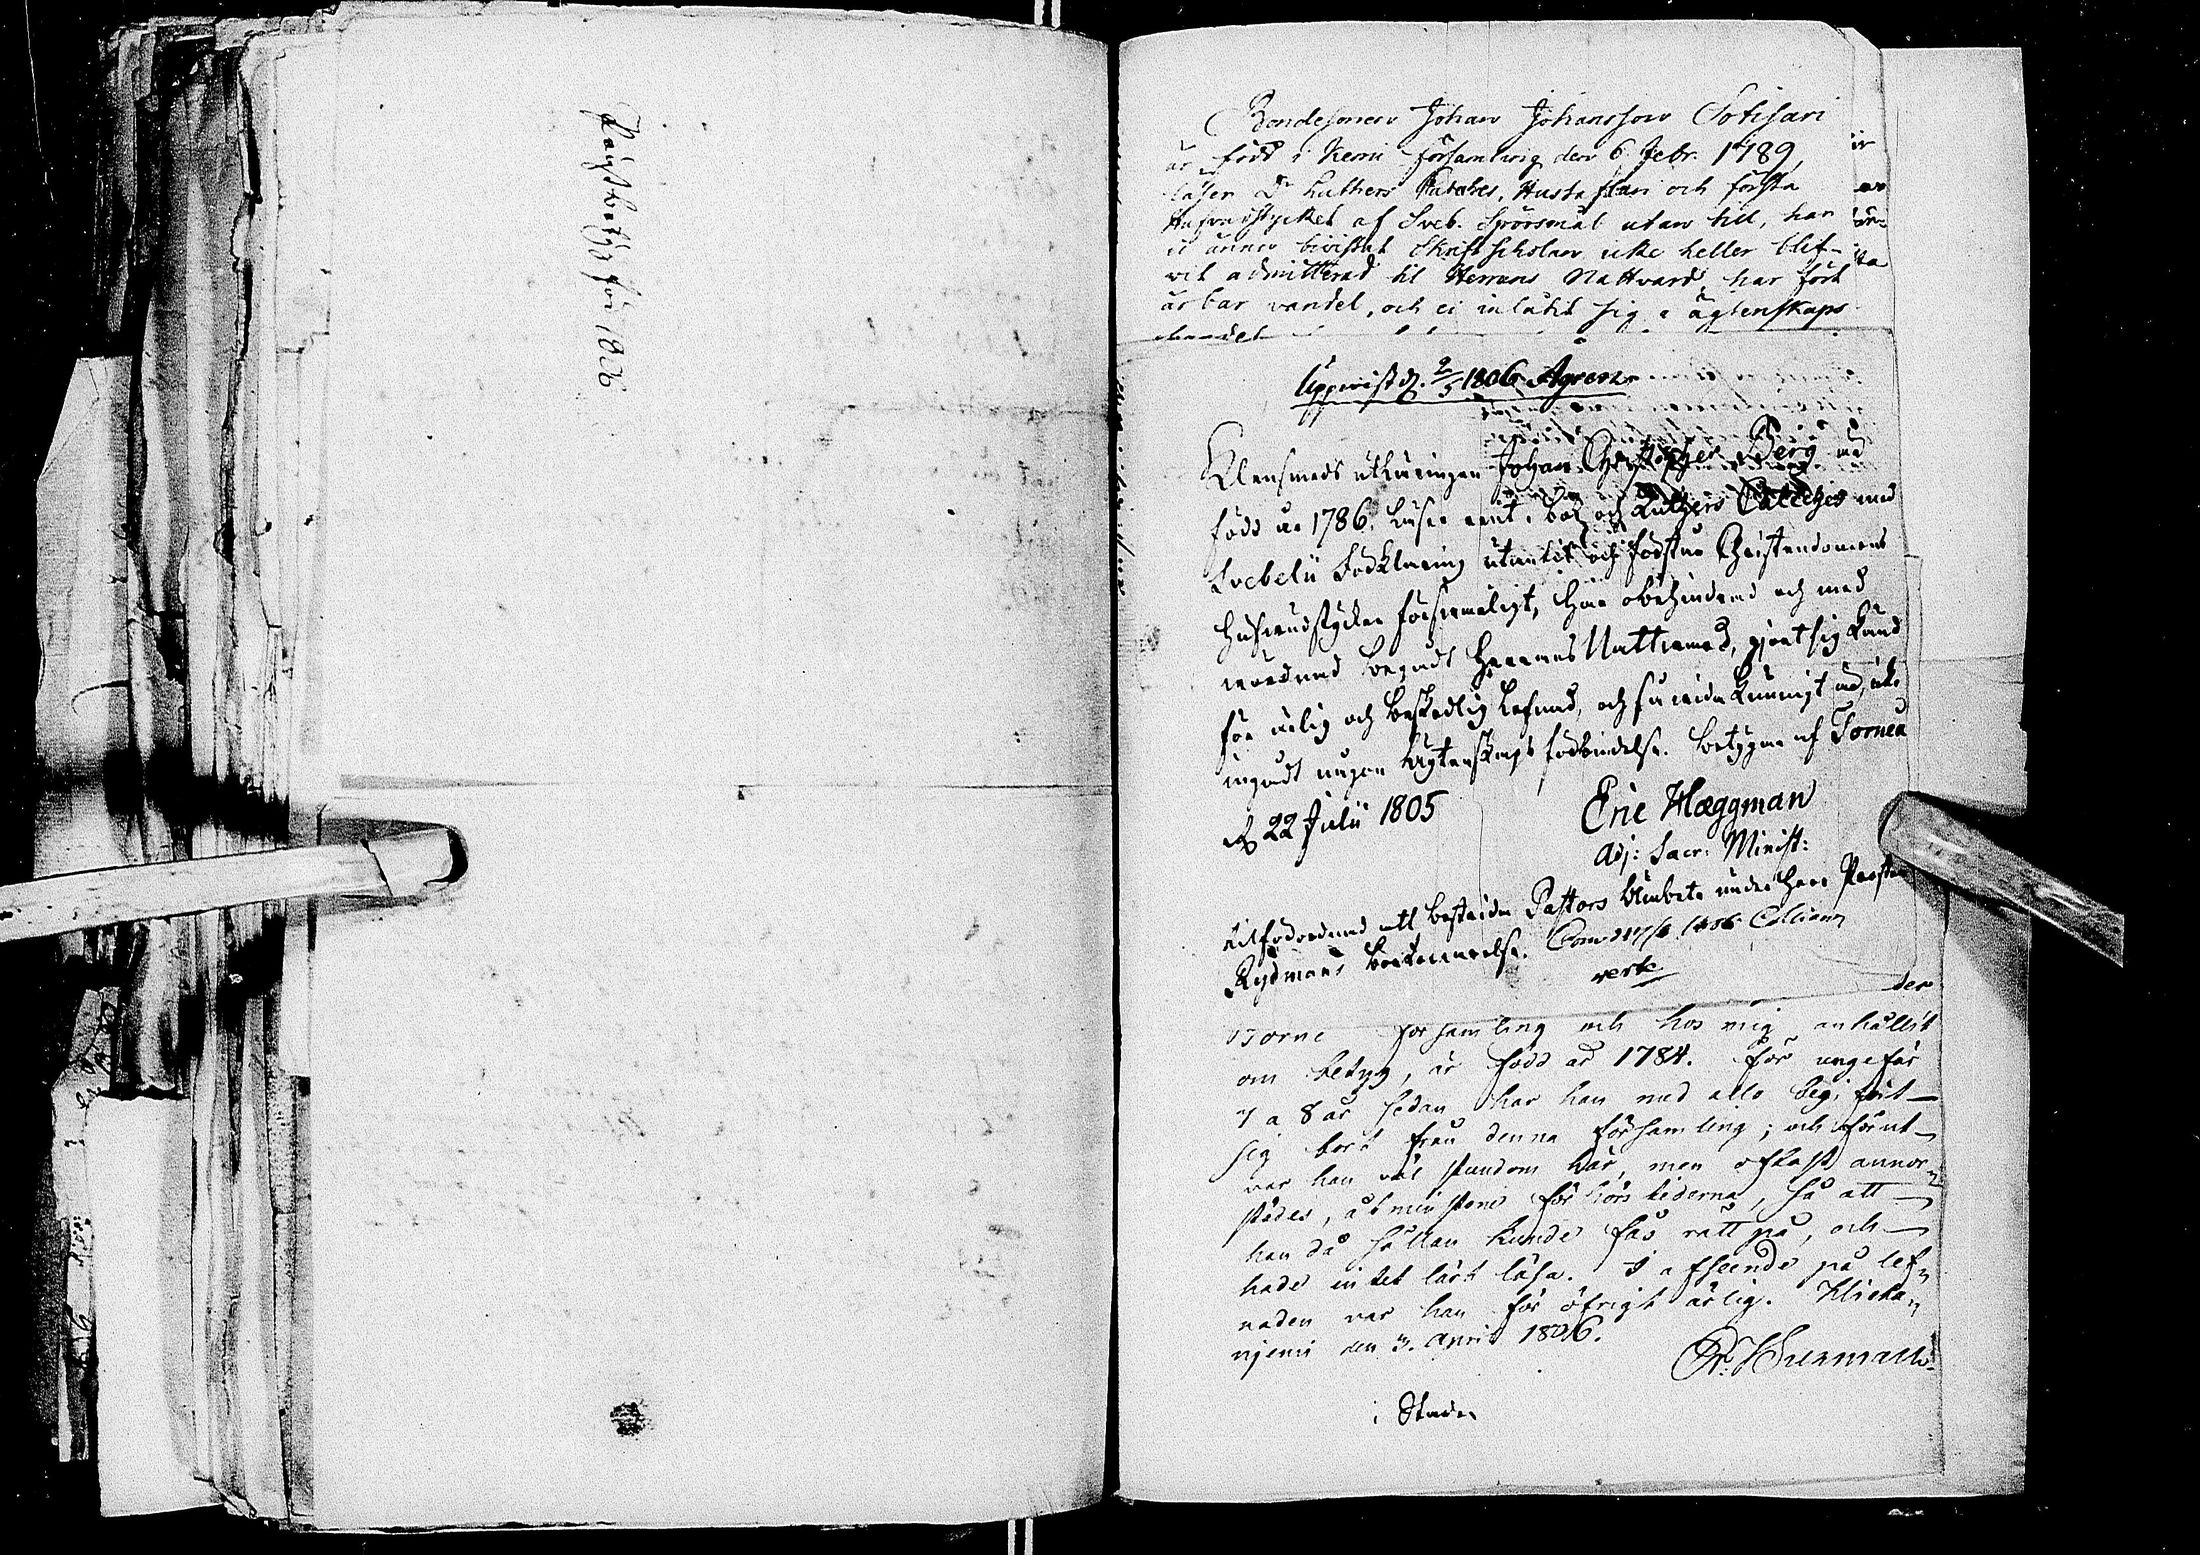 för 1806
Bondesonen Johan Johansson Sotisari
är född i Kemi Församling den 6 Febr. 1789,
läser Dr Luthers Cateches, Hustaflan och första
Hufvudstycket af Sveb. Spörsmål utan till, har
ei ännu bivistat Skriftscholan icke heller blif-
vit admitterad til Herrans Nattvard, har fört
ärbar vandel, och ei inlåtit sig i ägtenskaps
handel
Uppvist d. 2/5 1806 Agren
Klensmeds utläringen Johan Christopher Berg är
född år 1786. Läser rent i bok och Luthers Cateches med
Svebelii Förklaring utantil och förstår Christendomens
Hufvudstycken försvarligt, Har obehindrad och med
vördnad begådt Herrans Nattvard, gjort sig känd
för ärlig och beskedlig lefnad, och så vida kunnigt är, icke
ingådt någon Ägtenskaps förbindelse. Betygar af Torneå
d. 22 Julii 1805
Eric Hæggman
Adj: Sacr: Minist:
tilförordnad att bestrida Pastors Ämbete under Herr Prosten
Rydmans bortovarelse.
verte
der
Borne församling och hos mig anhållit
om betyg, är född år 1784. För ungefär
7 a 8 år sedan har han med alla begifvit
sig bort från denna församling; och förut
var han väl stundom här, men oftast annor-
städes, åtminstone förhörstiderna, så att
han då sällan kunde fås rätt på, och
hade intet lärt läsa. I afseende på lef-
naden var han för öfrigt ärlig. Hieta-
niemi den 3. April 1806.
i Stade